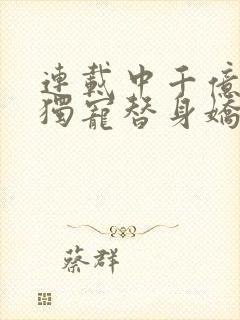 連載中千億
獨寵替身嬌
蔡群